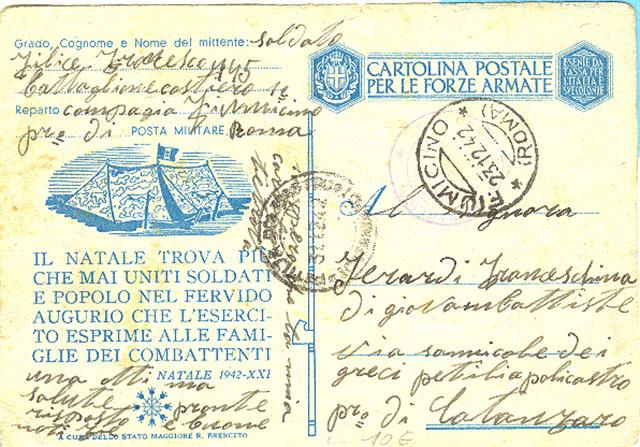 Grado, Cognome e Nome del mittente: soldato
Battaglione costiero
Reparto compagia
pro di POSTA MILITARE Roma
CARTOLINA POSTALE
PER LE FORZE ARMATE
ESENTE DA
TASSA PER
L'ITALIA E
SUE COLONIE
FIUMICINO
23.12.42
(ROMA)
IL NATALE TROVA PIÙ
CHE MAI UNITI SOLDATI
E POPOLO NEL FERVIDO
AUGURIO CHE L'ESERCI-
TO ESPRIME ALLE FAMI-
GLIE DEI COMBATTENTI
NATALE 1942-XXI
A CURA DELLO STATO MAGGIORE R. ESERCITO
la mia
una ottima
salute pronte
risposto e buone
Al Signora
Jerardi Franceschina
di giovambattiste
via sannicole dei
greci petilia policastro
pro di Catanzaro
10 €